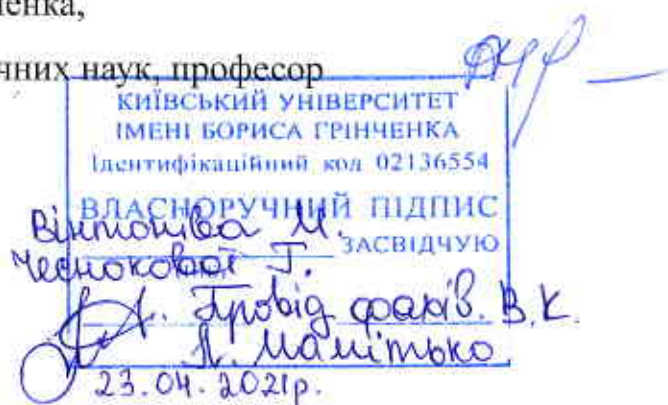 енка,
чних наук, професор
КИЇВСЬКИЙ УНІВЕРСИТЕТ
ІМЕНІ БОРИСА ГРІНЧЕНКА
Ідентифікаційний код 02136554
ВЛАСНОРУЧНИЙ ПІДПИС
Вінтоніва М.
ЗАСВІДЧУЮ
Чеснокової Г.
Провід фахів. В.К.
23.04.2021р.